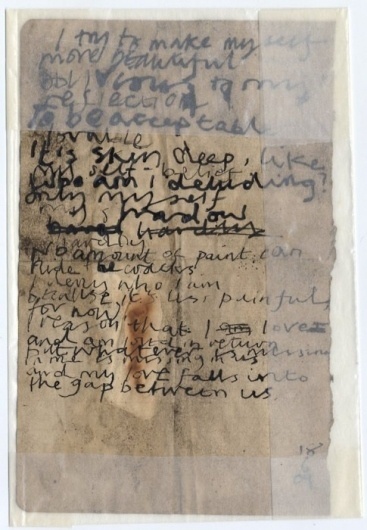 I try to make my self
more beautiful
to my
reflection
To be acceptable
lovable
It is skin deep, like
my self belief
who am i deluding?
only my self
my shadow
No amount of paint can
hide the cracks
I deny who I am
because it's less painful
for now
I reason that I am love
and am loved in return
but whatever
and my love falls into
the gap between us